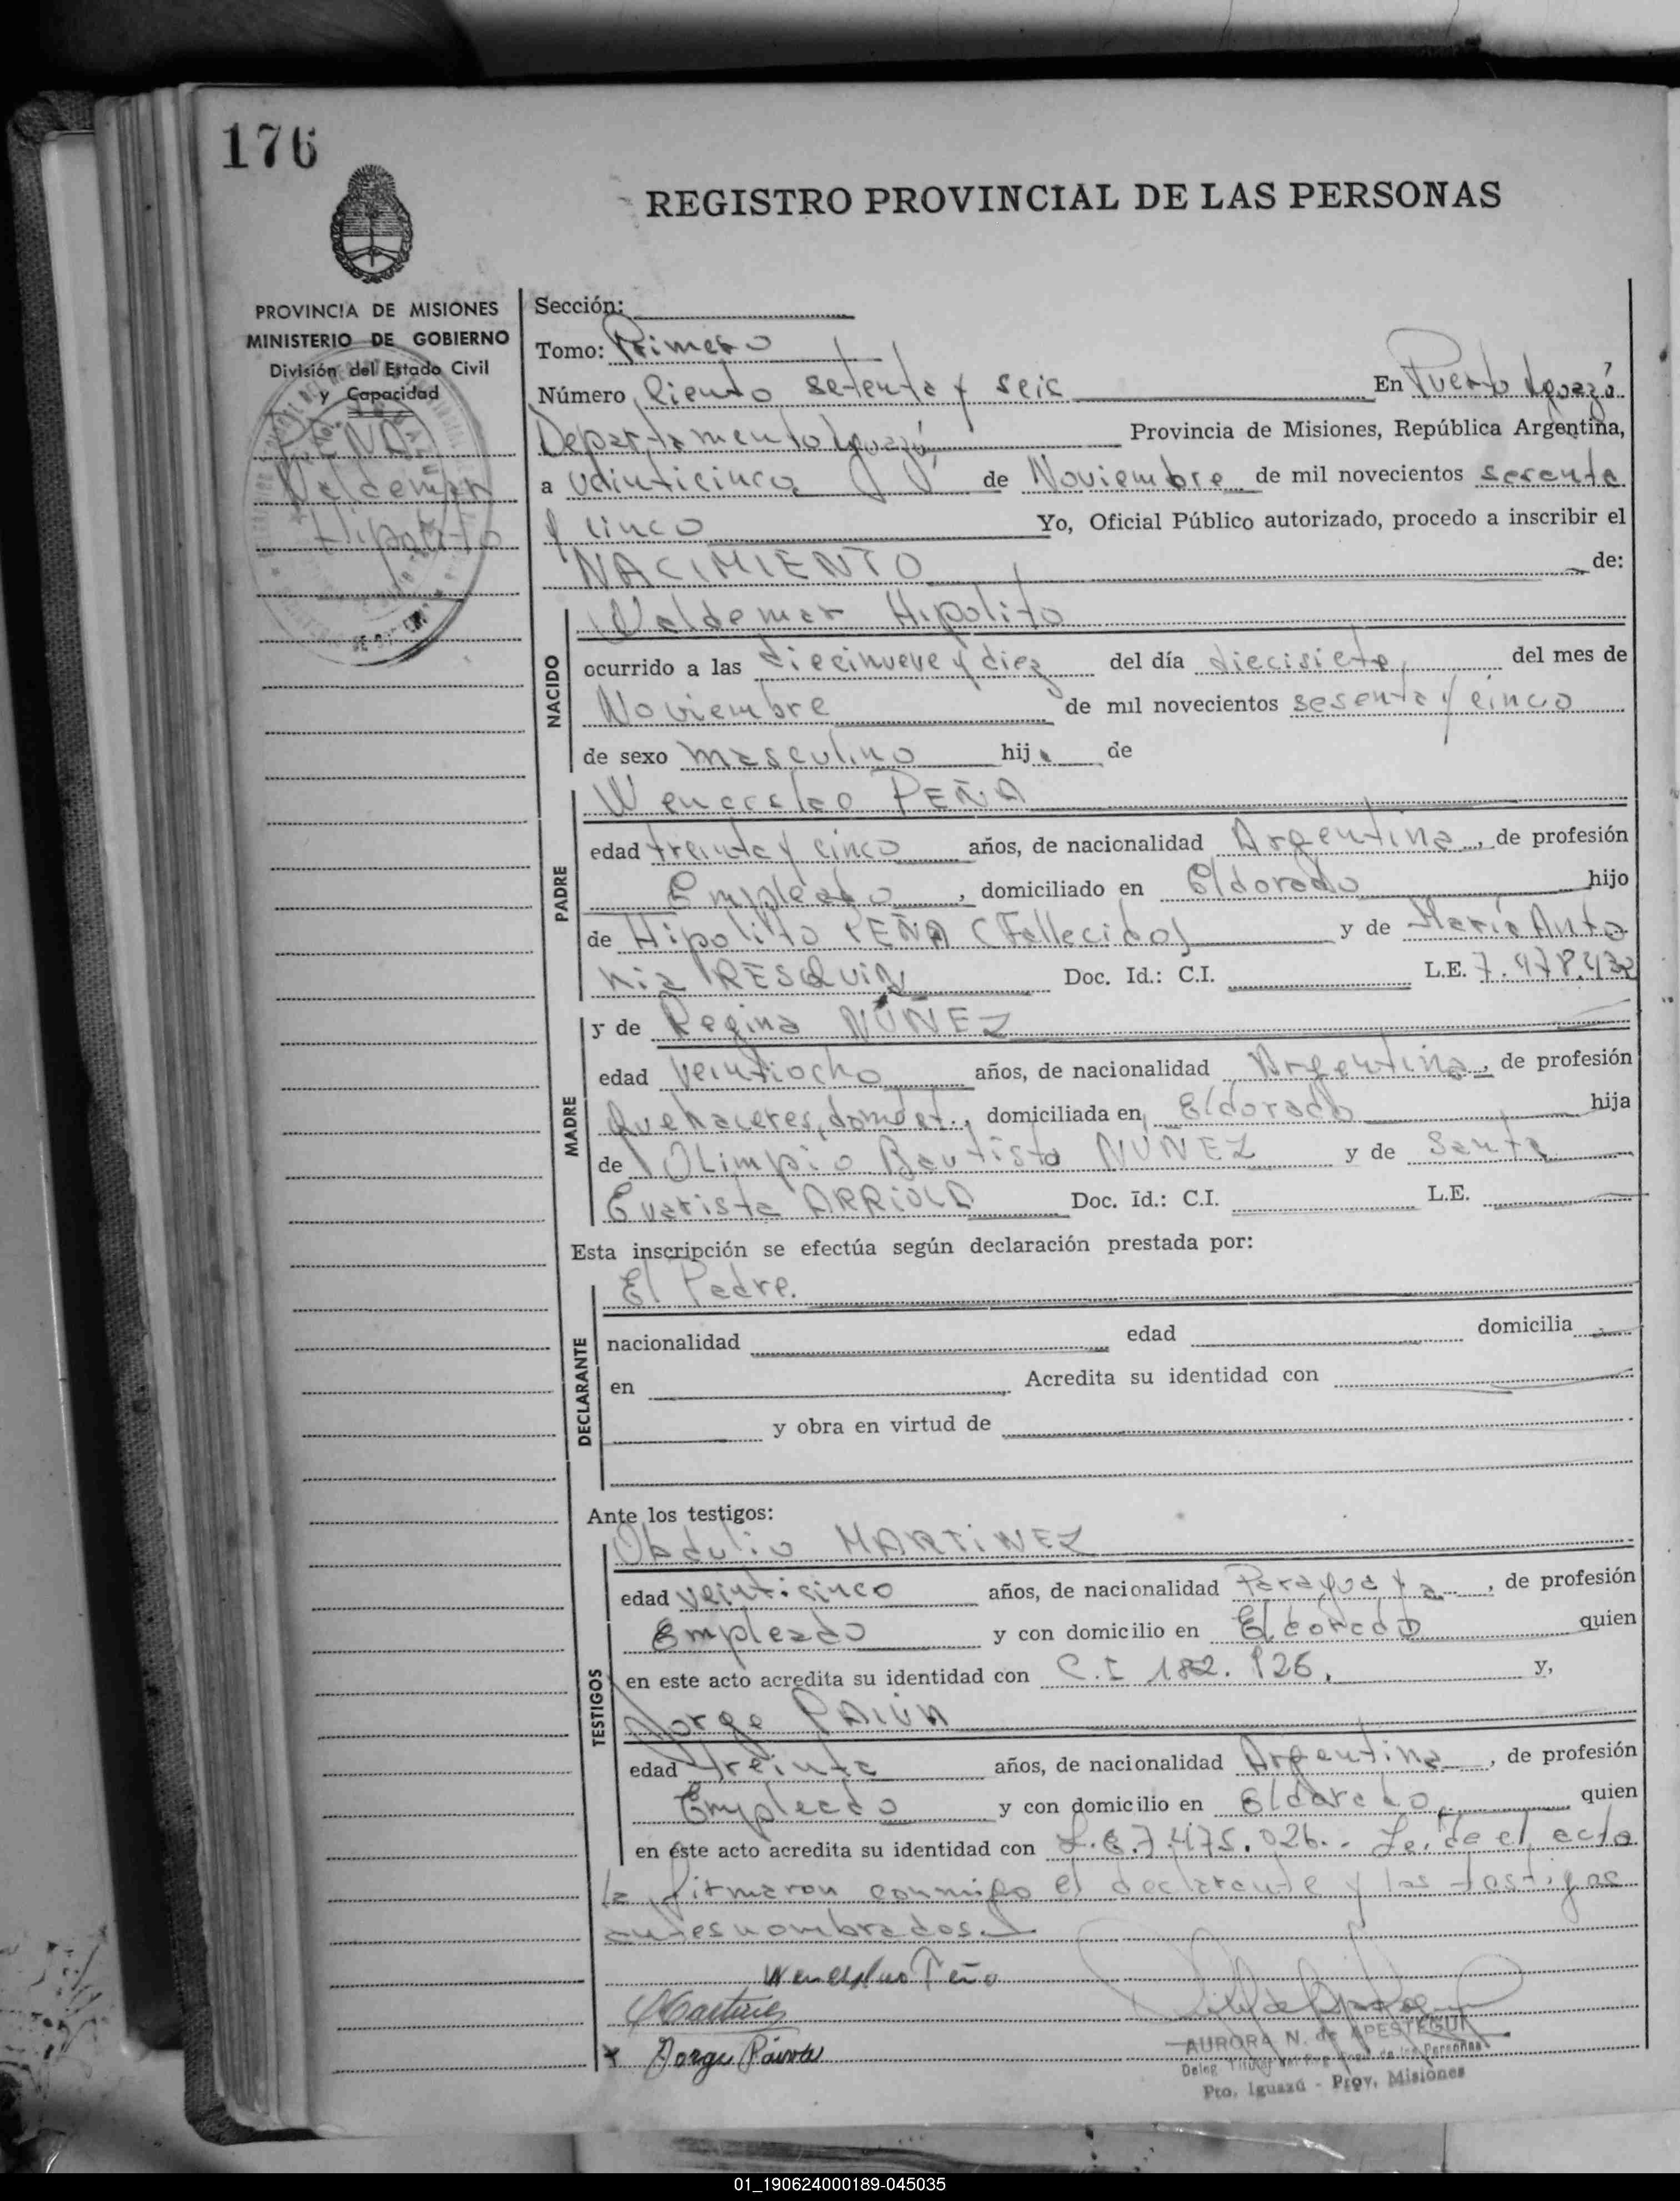 176
REGISTRO PROVINCIAL DE LAS PERSONAS
PROVINCIA DE MISIONES
MINISTERIO DE GOBIERNO
División del Estado Civil
y Capacidad
PEÑA
Valdemar
Hipolito
Sección:
Tomo: Primero
Número Ciento setenta y seis En Puerto Iguazú
Departamento Iguazú Provincia de Misiones, República Argentina,
a veinticinco de Noviembre de mil novecientos sesenta
y cinco Yo, Oficial Público autorizado, procedo a inscribir el
NACIMIENTO de:
NACIDO
Valdemar Hipolito
ocurrido a las diecinueve y diez del día diecisiete, del mes de
Noviembre de mil novecientos sesenta y cinco
de sexo masculino hijo de
PADRE
Wenceslao PEÑA
edad treinta y cinco años, de nacionalidad Argentina, de profesión
Empleado, domiciliado en Eldorado hijo
de Hipolito PEÑA (Fallecido) y de María Anto
nia RESQUIN Doc. Id.: C.I. L.E. 7.478.432
MADRE
y de Regina NUÑEZ
edad veintiocho años, de nacionalidad Argentina, de profesión
Quehaceres domést., domiciliada en Eldorado hija
de Olimpio Bautista NUÑEZ y de Santa
Evarista ARRIOLA Doc. Id.: C.I. L.E.
Esta inscripción se efectúa según declaración prestada por:
DECLARANTE
El Padre.
nacionalidad edad domicilia
en Acredita su identidad con
y obra en virtud de
Ante los testigos:
TESTIGOS
Obdulio MARTINEZ
edad veinticinco años, de nacionalidad Paraguaya, de profesión
Empleado y con domicilio en Eldorado quien
en este acto acredita su identidad con C.I 182.926. y,
Jorge PAIVA
edad treinta años, de nacionalidad Argentina, de profesión
Empleado y con domicilio en Eldorado, quien
en este acto acredita su identidad con L.E.7.475.026.- Leída el acta
la firmaron conmigo el declarante y los testigos
antes nombrados.
Wenceslao Peña
Martinez
Jorge Paiva
AURORA N. de APESTEGUI
Deleg. Titular del Reg. Prov. de las Personas
Pto. Iguazú - Prov. Misiones
01_190624000189-045035